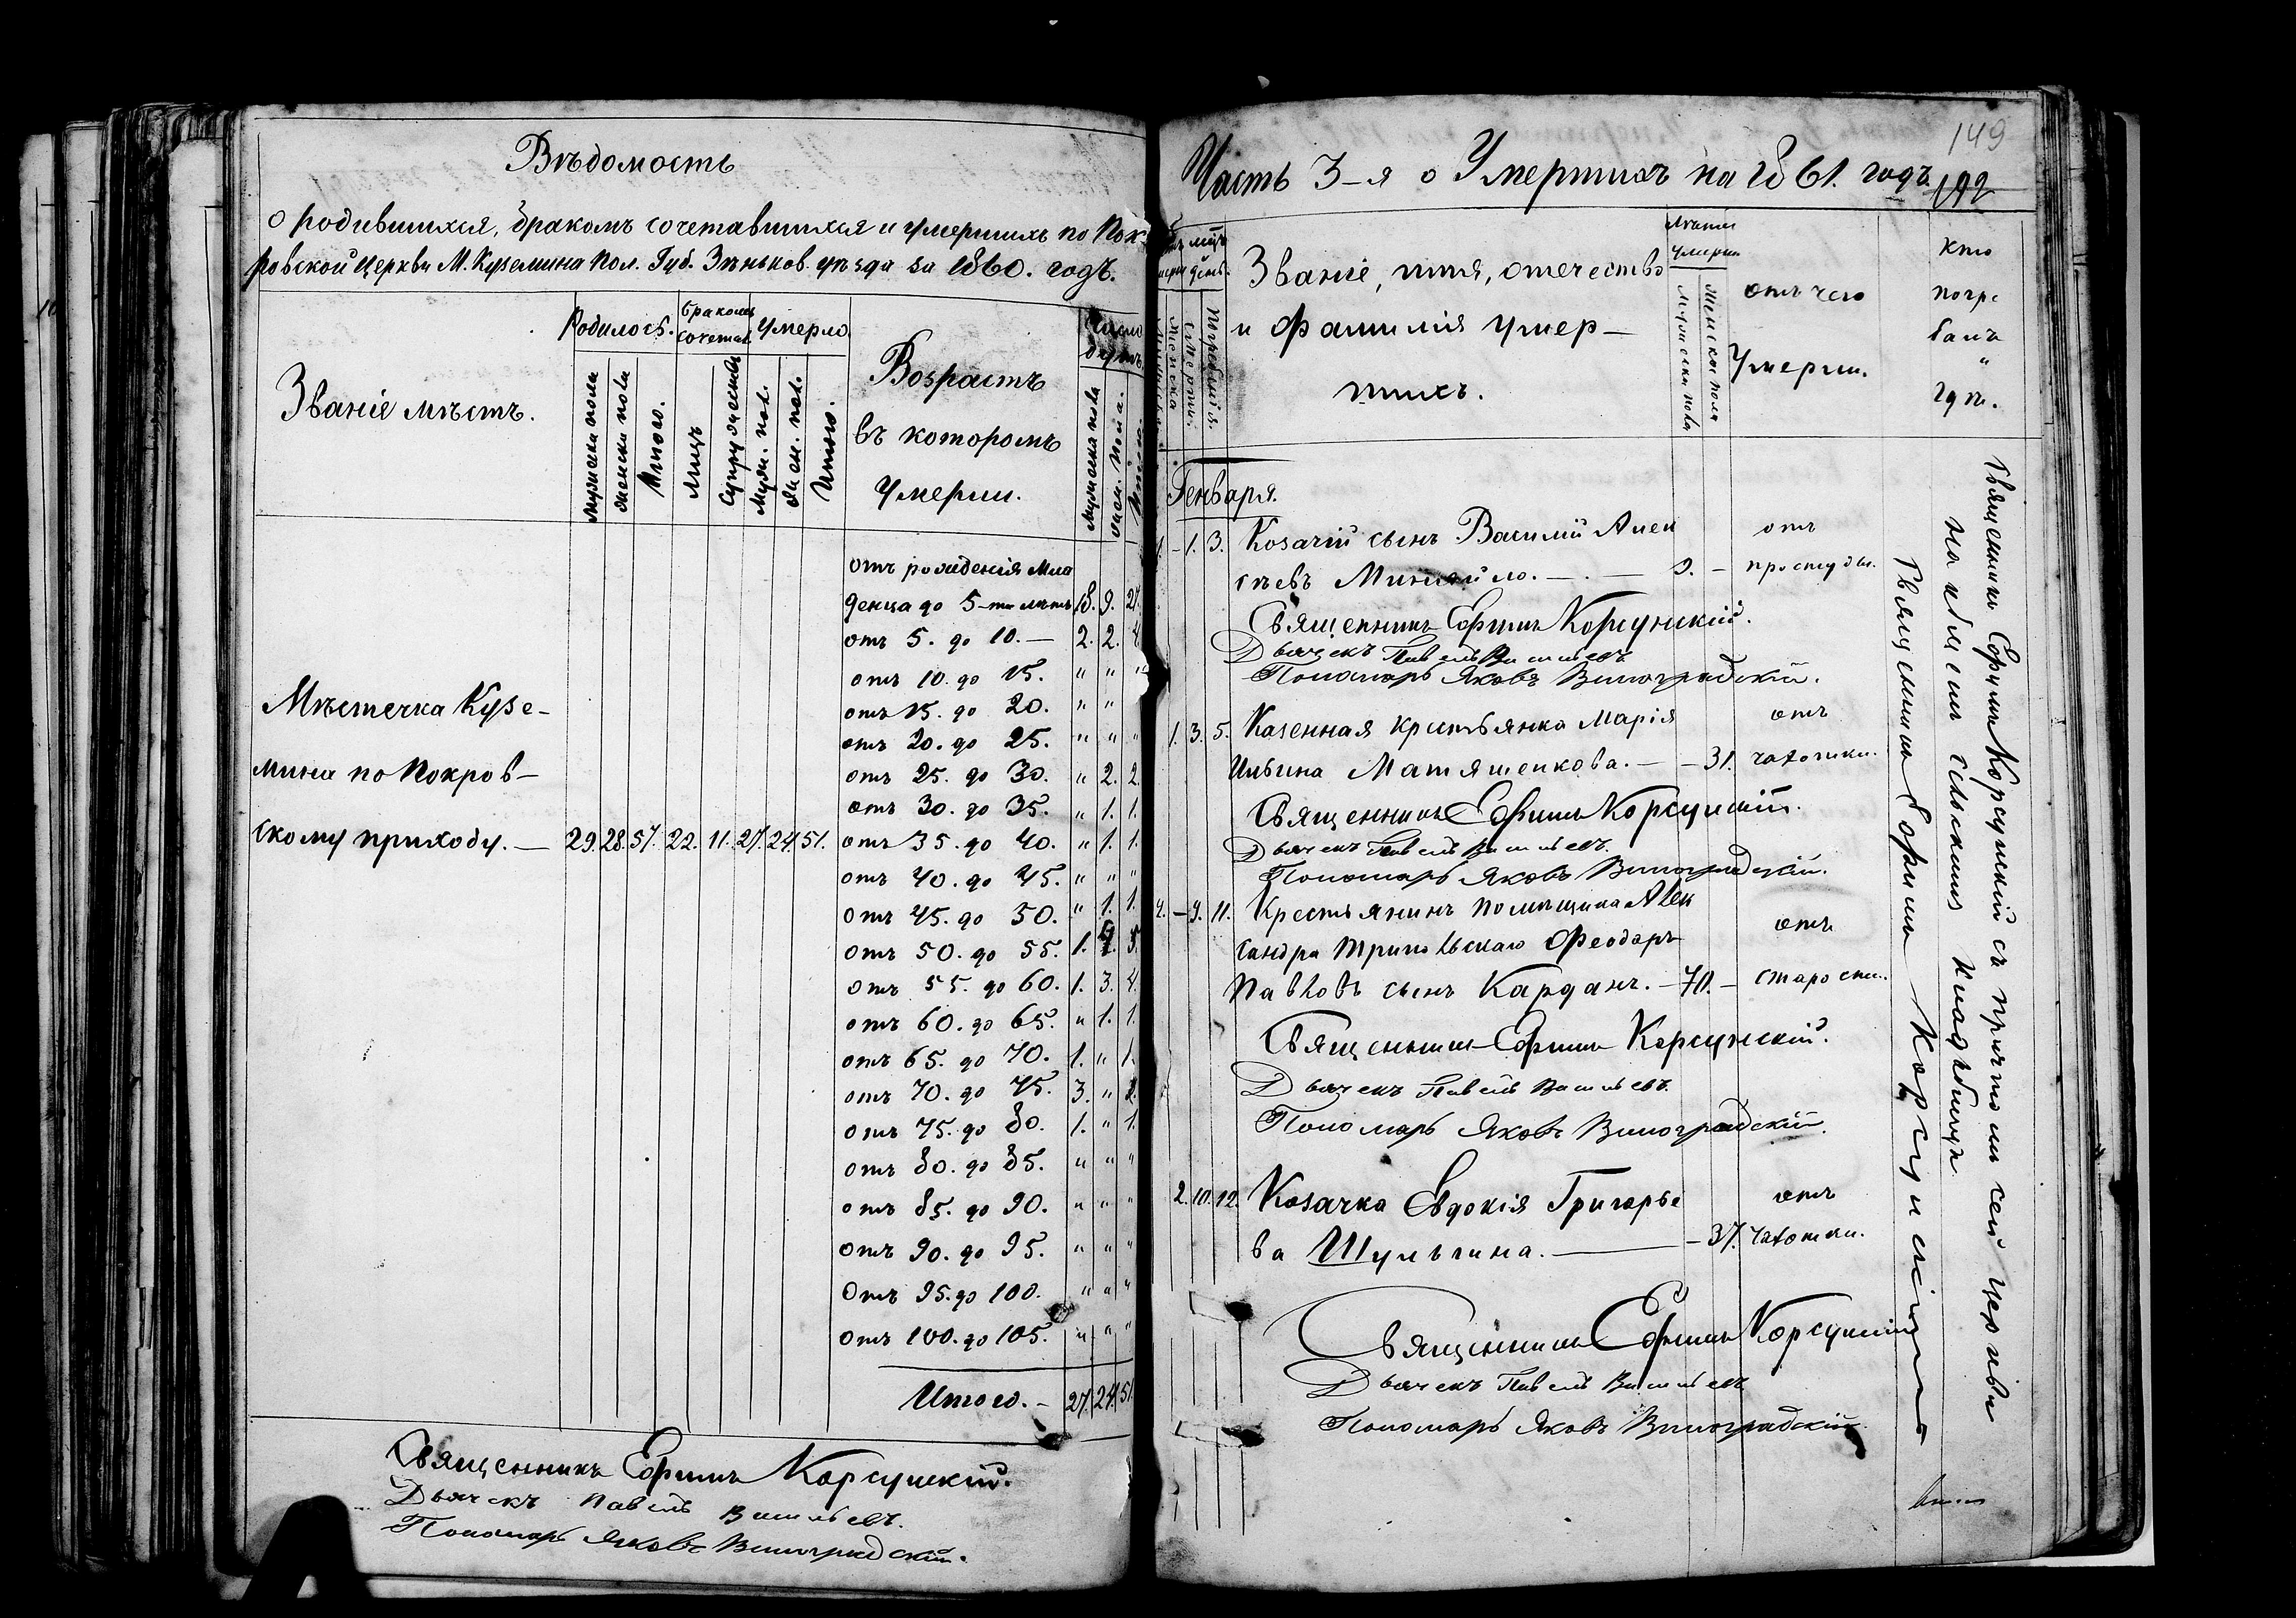 Вѣдомость
о родившихся, бракомъ сочетавшихся и умершихъ по Пок-
ровской Церкви М. Куземина Пол. Губ. Зѣньков. уѣзда за 1860. годъ.
Званіе мѣстъ.
Родилось.
Бракомъ сочетал.
Умерло.
Возрастъ
въ которомъ
умерли.
Число душъ
мужеска пола
женска пола
Итого.
лицъ
супружествъ
муж. пол.
жен. пол.
Итого.
мужеска пола
жен. пола.
Итого
отъ рожденія Мла
денца до 5-ти лѣтъ 18. 9. 27.
отъ 5. до 10. — 2. 2. 4.
отъ 10. до 15. " " "
отъ 15. до 20. " "
отъ 20. до 25. " " "
отъ 25. до 30. " 2. 2.
отъ 30. до 35. " 1. 1.
отъ 35. до 40. " 1. 1.
отъ 40. до 45. " " "
отъ 45. до 50. " 1. 1.
отъ 50. до 55. 1. 4. 5.
отъ 55. до 60. 1. 3. 4.
отъ 60. до 65. " 1. 1.
отъ 65. до 70. 1. " 1.
отъ 70. до 75. 3. "
отъ 75. до 80. 1. " 1.
отъ 80. до 85. " " "
отъ 85. до 90. " " "
отъ 90. до 95. " " "
отъ 95. до 100. " " "
отъ 100. до 105. " " "
Итого. — 27. 24. 51.
Мѣстечка Кузе-
мина по Покров-
скому приходу. — 29. 28. 57. 22. 11. 27. 24. 51.
Священникъ Ефимъ Корсунскій.
Дьячекъ Павелъ Васильевъ.
Пономарь Яковъ Виноградскій.
149
Часть 3-я о Умершихъ на 1861. годъ. 192
мѣс. день.
Мужеска
Женска
Смерти.
Погребенія.
Званіе, имя, отечество
и фамилія умер-
шихъ.
Лѣта умерш.
Мужеска пола
Женска пола
отъ чего
Умерли.
кто
погре
балъ
"
гдѣ.
Генваря.
1. - 1. 3. Козачій сынъ Василій Алек
сѣевъ Миняйло. — . — 9. - отъ простуды.
Священникъ Ефимъ Корсунскій.
Дьячекъ Павелъ Васильевъ.
Пономарь Яковъ Виноградскій.
1. 3. 5. Казенная крестьянка Марія
Ильина Матяшенкова. — - 31. отъ чахотки.
Священникъ Ефимъ Корсунскій.
Дьячекъ Павелъ Васильевъ.
Пономарь Яковъ Виноградскій.
2. - 9. 11. Крестьянинъ помѣщика Алек
сандра Трипольскаго Феодоръ
Павловъ сынъ Карданъ. - 70. - отъ старости.
Священникъ Ефимъ Корсунскій.
Дьячекъ Павелъ Васильевъ.
Пономарь Яковъ Виноградскій.
2. 10. 12. Козачка Евдокія Григорье
ва Шульгина. — - 37. отъ чахотки.
Священникъ Ефимъ Корсунскій
Дьячекъ Павелъ Васильевъ
Пономарь Яковъ Виноградскій.
Священникъ Ефимъ Корсунскій съ причтомъ сей церкви
на общемъ сельскомъ кладбищѣ
Священникъ Ефимъ Корсунскій